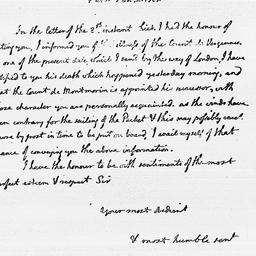 In the letter of the 2d. instant which I had the honour of
ting you, I informed you of the illness of the Count de Vergennes.
one of the present date, which I send by the way of London, I have
tified to you his death which happened yesterday morning, and
at the Count de Montmorin is appointed his successor, with
ose character you are personally acquainted. as the winds have
en contrary for the sailing of the Packet & this may possibly reach
ore by post in time to be put on board, I avail myself of that
ance of conveying you the above information.
I have the honour to be with sentiments of the most
rfect esteem & respect Sir
Your most obedient
& most humble servt